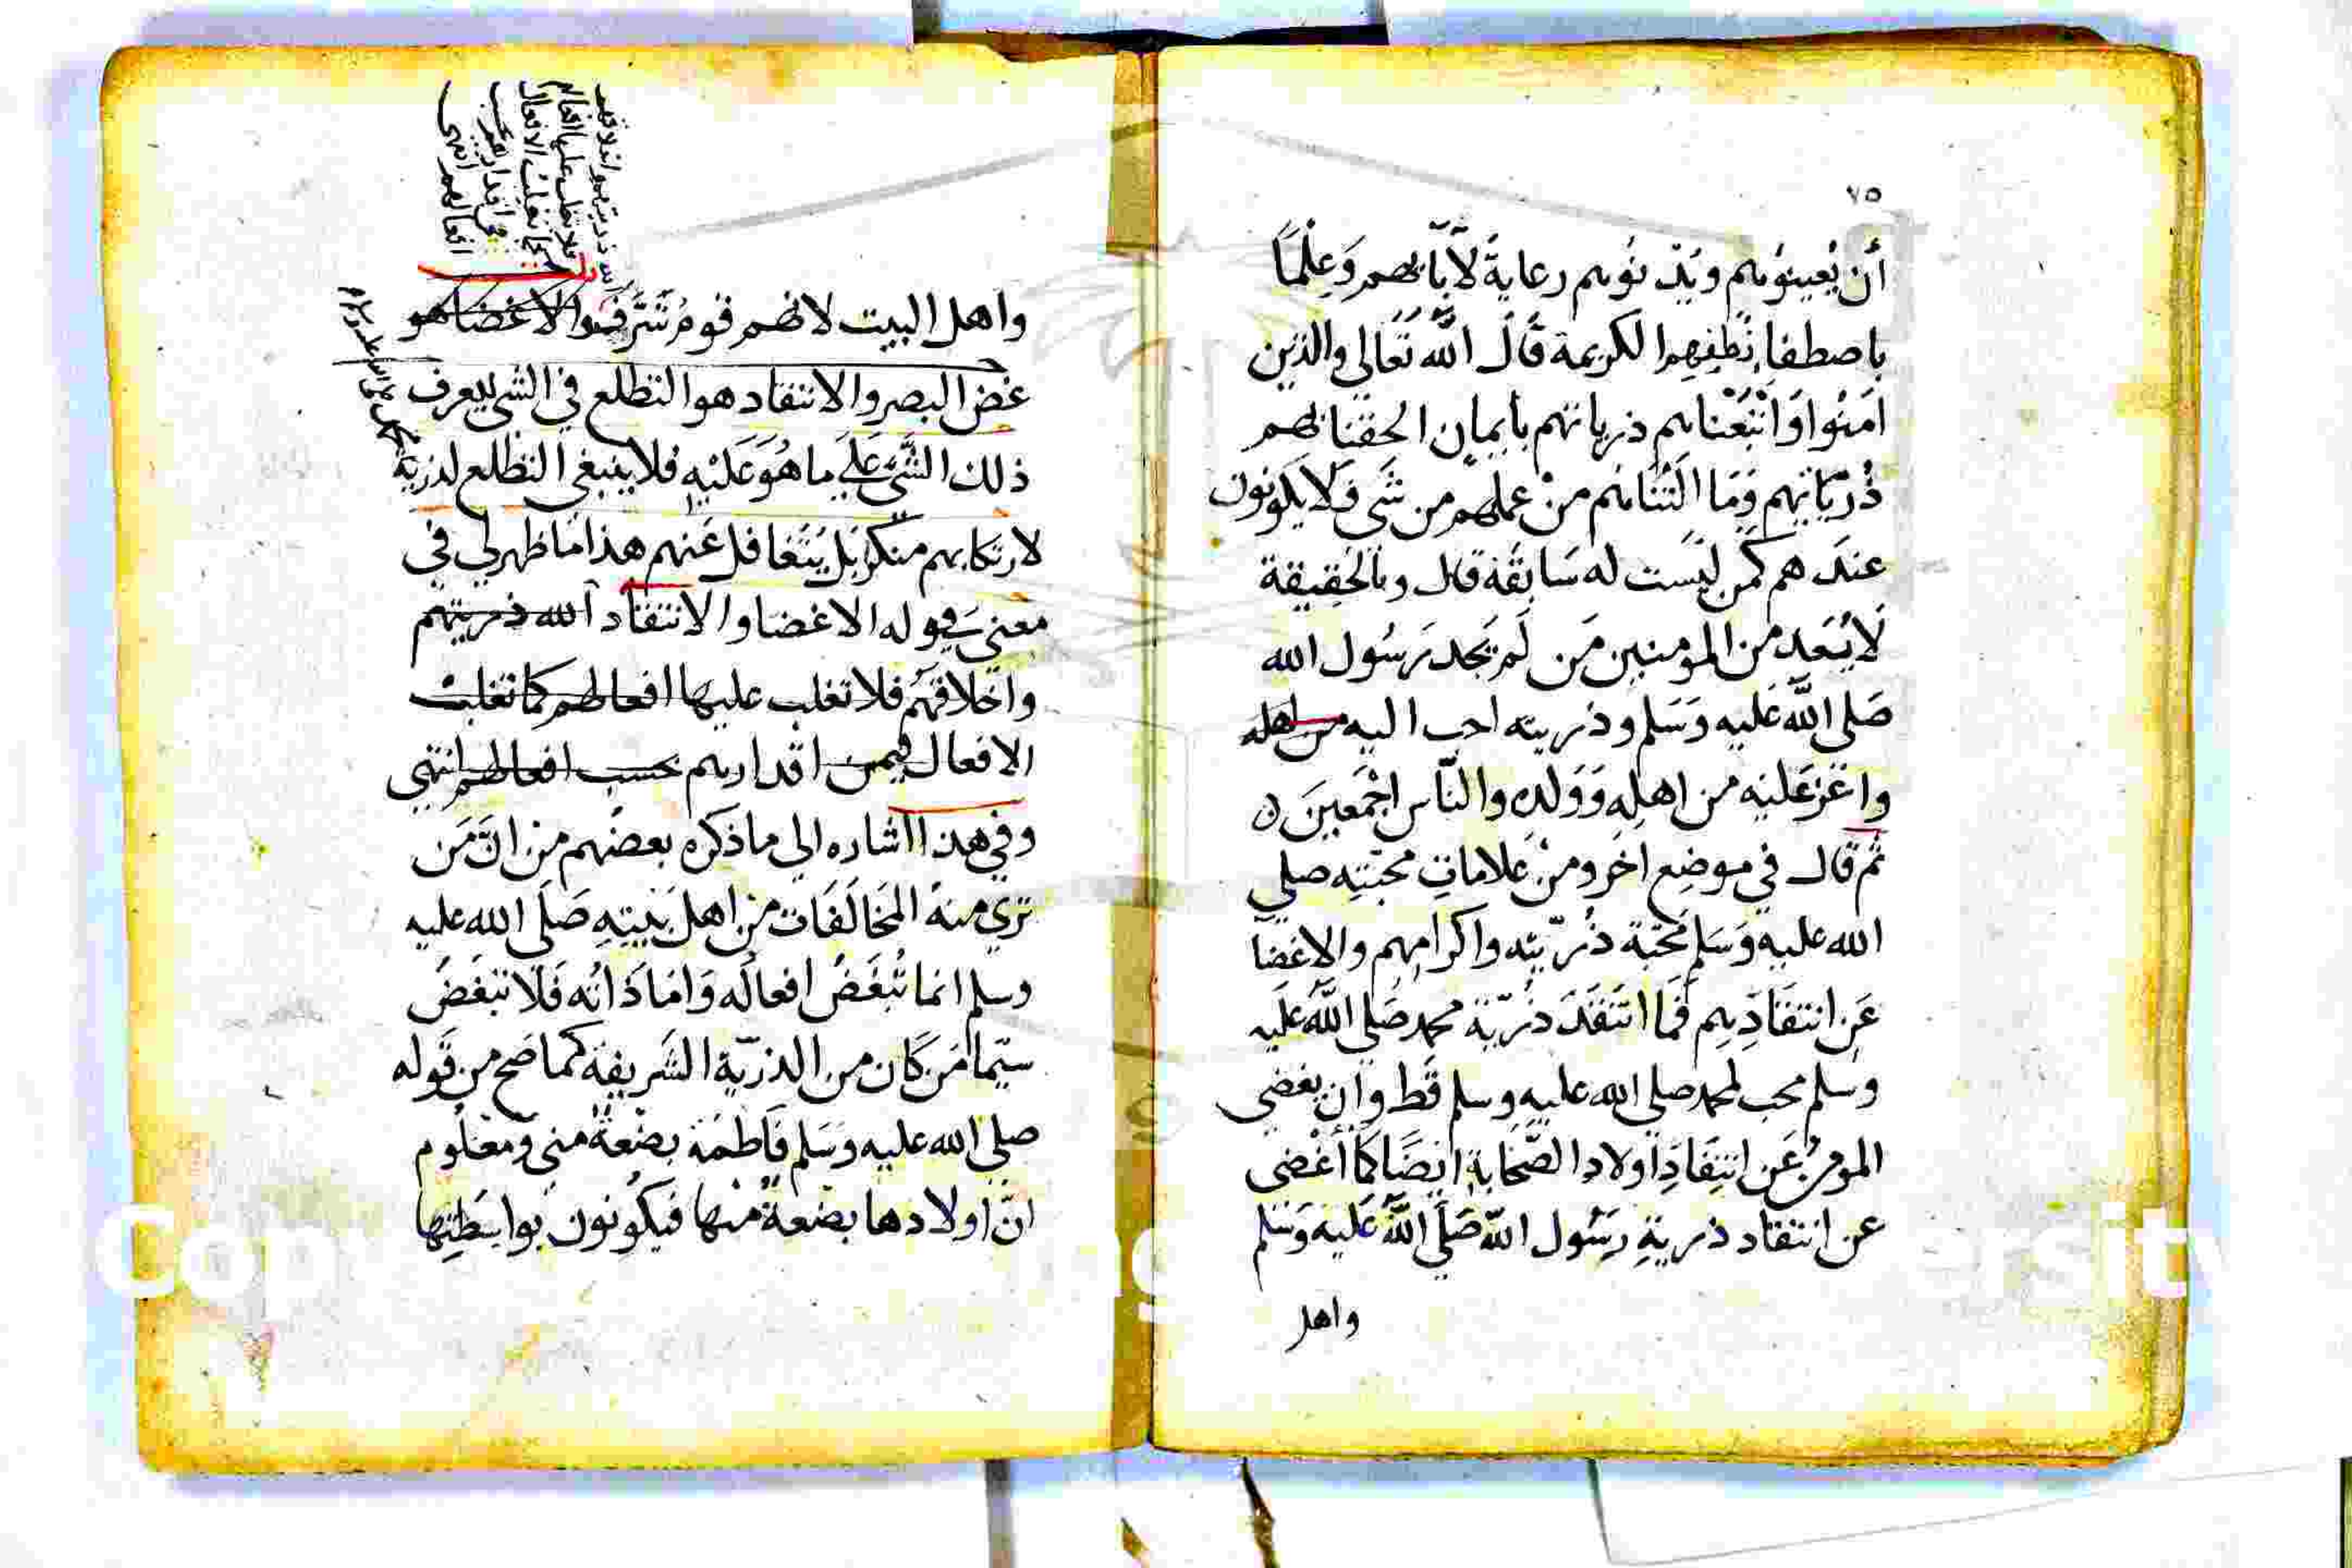 ٧٥
أن يُعينوهم ويذبّوهم رعاية لآبائهم وَعِلمًا
باصطفا نُطَفِهِم الكريمة قَالَ الله تَعَالى والذين
امَنُوا وَاَتْبَعْناهم ذرياتهم بأيمان الحقنا بهم
ذُرّيَاتهم وَمَا اَلَتْنَاهُم منْ عملهم من شَي فَلَا يكونون
عندَهم كمَن ليسَت له سَابقَة قال وبالحَقِيقة
لَا يُعَد من المومنين مَن لَم يَجد رَسُول الله
صَلى الله عَليه وَسَلم وذريته احب اليه من اهله
واعَزّ عَليه من اهلِه وَوَلدِه والنّاس اجْمَعينَ ن
ثم قال في موضِع اخَر ومنْ عَلاماتِ محبّتِه صلي
الله عليه وَسَلم مَحبّة ذُرّيّته واكرامِهم والاغضَا
عَن انتقَادِهِم فَما انتَقَدَ ذُرّيّة محمد صَلى الله عَليه
وسلم محب لمحمد صلي الله عليه وسلم قَط وان يغضي
المومنُ عَن انتِقَادِ اولاد الصّحَابة ايضَا كمَا اغْضى
عن انتقاد ذرية رسُول الله صَلّى الله عَليه وَسَلم
واهل
واهل البيت لانهم قوم شَرّفوا الاغضا هو
غض البصر والانتقاد هو التطلع في الشي ليعرف
ذلك الشّي عَلَى ما هُوَ عَليْهِ فلا ينبغي التطلع لذرية
محمد صلى الله عليه وسلم
لارتكابهم منكر بَل يُتغافل عَنهم هذا مَا ظهر لي في
معنى قوله الاغضا والانتقاد الله ذريتهم
واخلاقهم فلا تغلب عليها افعالهم كما تغلبت
الافعال فيمن اقدارهم بحسب افعالهم انتهي
وفي هذا اشاره الي ما ذكره بعضُهم من انّ مَن
تري منهُ المخَالَفَات من اهل بَيتِهِ صَلّى الله عليه
وسلم انما تُبغَضُ افعالُه وَامَا ذَاتُه فَلَا تبغَضُ
سيّما مَن كَان من الذرّية الشَريفة كما صَح من قَوله
صلي الله عليه وَسَلم فَاطمَة بضْعةٌ مني وَمعْلُوم
انّ اولادها بضعةٌ منها فيَكُونون بواسَطِتها